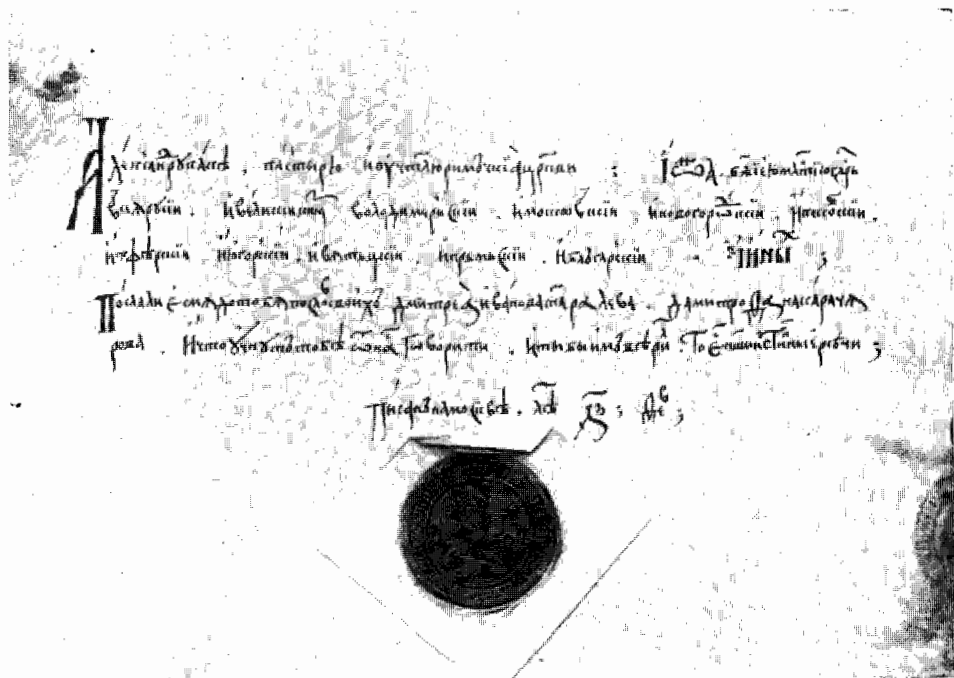 Алеѯандру папѣ, пастырю и учителю римъскиа церкви: Іѡан, бжіею млстію гсдрь
всея русіи, и великіи кнзь володимирьскіи, и московьскіи, и новогородскіи, и псковскіи,
и тферскіи, и югорскіи, и вятьцкіи, и перьмьскіи, и болгарскіи и иных;
Послали есмя до тобя послов своих Дмитреа Иванова сына Ралева, да Митрофана Карача
рова, И что учнут тобѣ от нас говорити, и ты бы им вѣрил, то есть наши истинные рѣчи;
Писана на Москвѣ, лѣта ҂зз; фев;